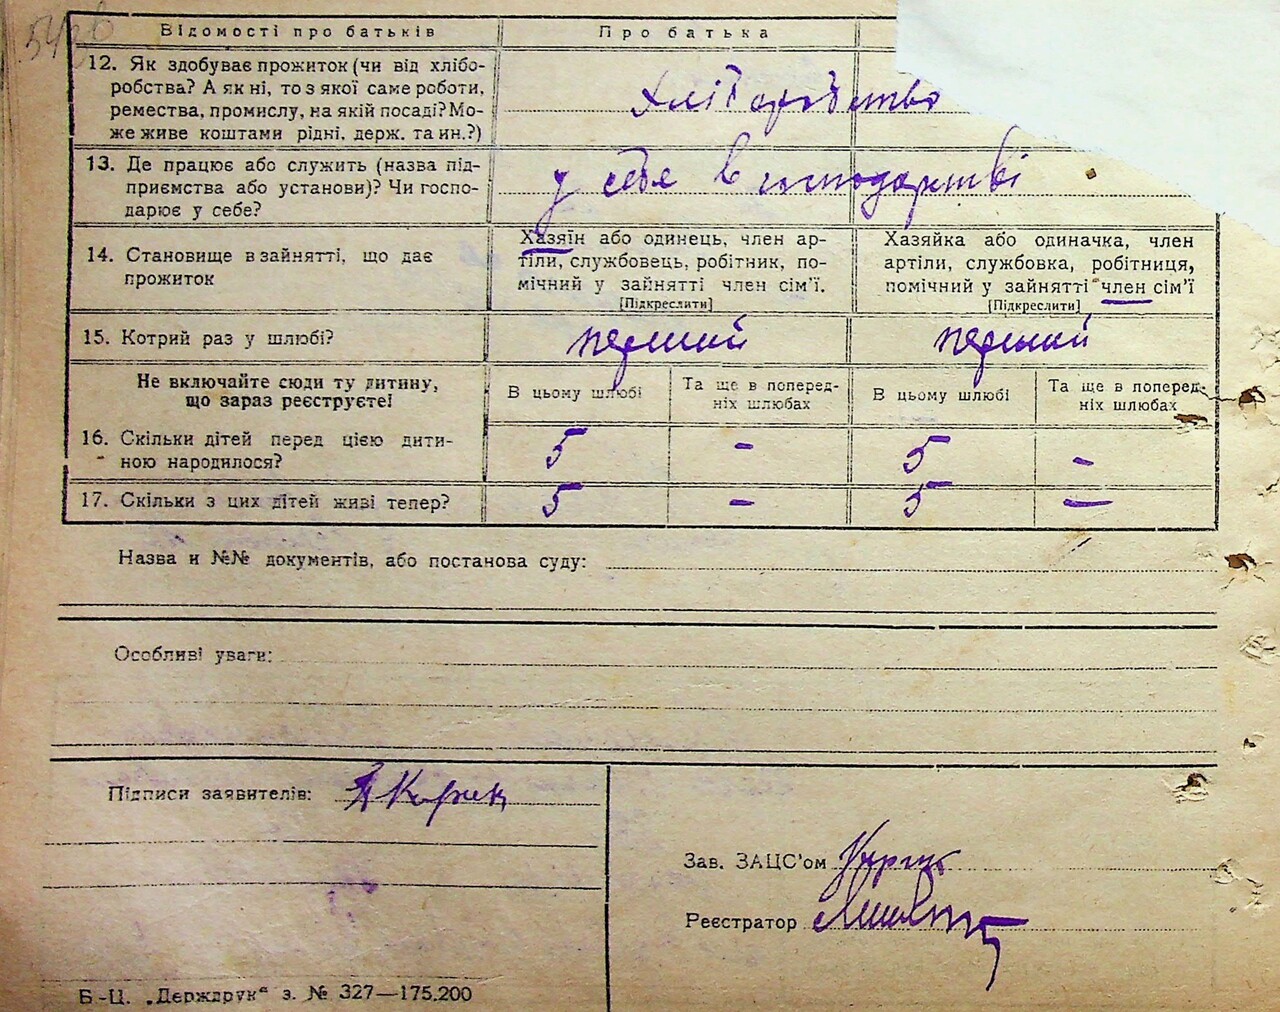 Відомості про батьків
Про батька
12. Як здобуває прожиток (чи від хлібо-
робства? А як ні, то з якої саме роботи,
ремества, промислу, на якій посаді? Мо-
же живе коштами рідні, держ. та ин.?)
хліборобство
13. Де працює або служить (назва під-
приємства або установи)? Чи госпо-
дарює у себе?
у себе в господарстві
14. Становище в зайнятті, що дає
прожиток
Хазяїн або одинець, член ар-
тіли, службовець, робітник, по-
мічний у зайнятті член сім'ї.
[Підкреслити]
Хазяйка або одиначка, член
артіли, службовка, робітниця,
помічний у зайнятті член сім'ї
[Підкреслити]
15. Котрий раз у шлюбі?
первий
первий
Не включайте сюди ту дитину,
що зараз реєструєте!
В цьому шлюбі
Та ще в поперед-
ніх шлюбах
В цьому шлюбі
Та ще в поперед-
ніх шлюбах
16. Скільки дітей перед цією дити-
ною народилося?
5 – 5 –
17. Скільки з цих дітей живі тепер?
5 – 5 –
Назва и №№ документів, або постанова суду:
Особливі уваги:
Підписи заявителів:
Зав. ЗАЦС'ом
Реєстратор
Б-Ц. „Держдрук“ з. № 327—175.200